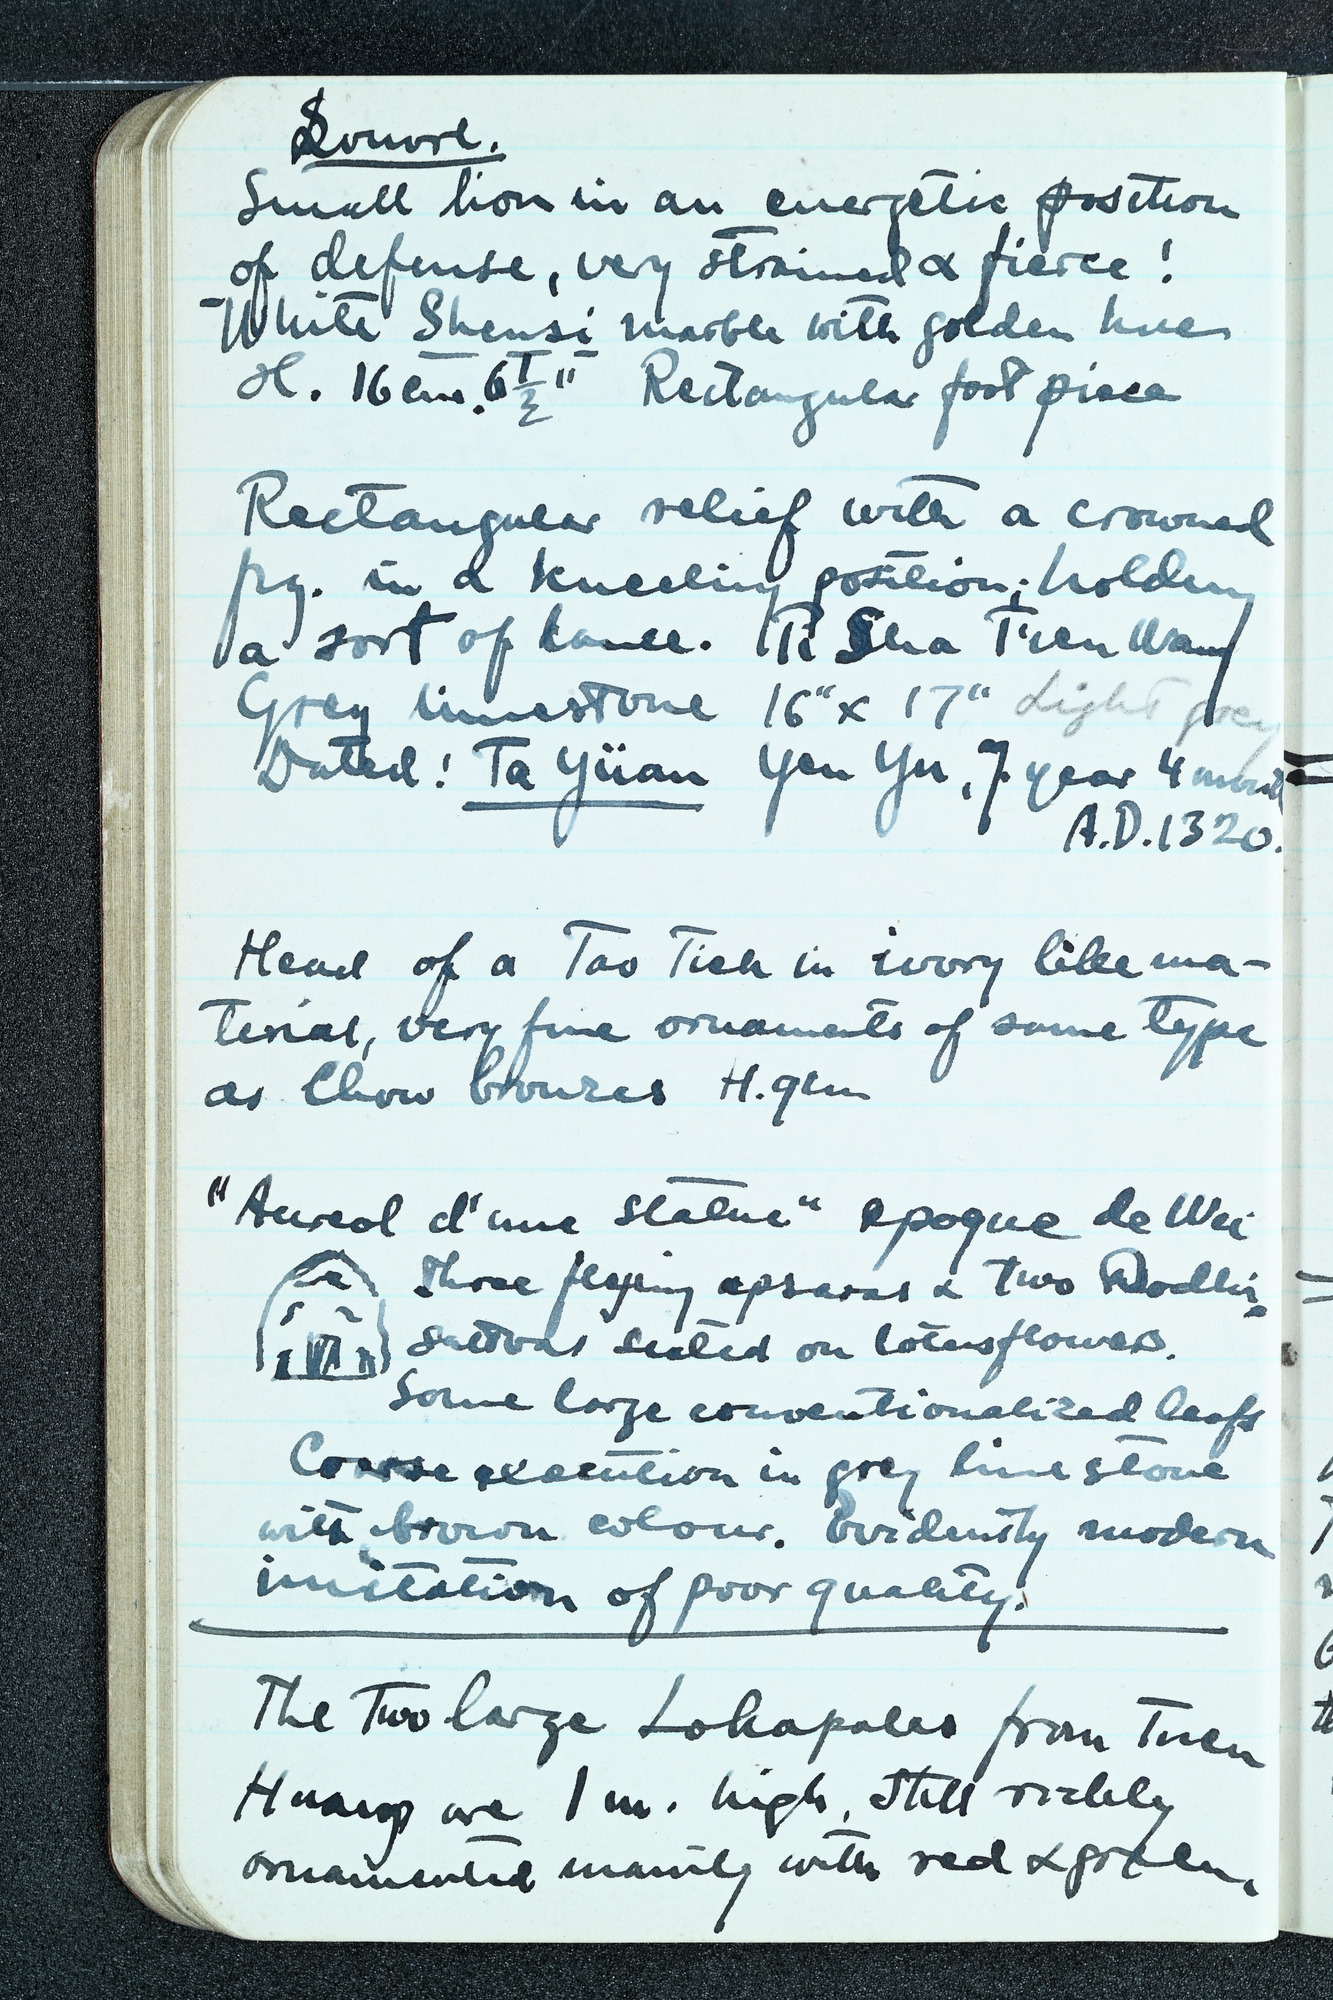 Louvre.
Small lion in an energetic position
of defense, very strained & fierce!
White Shensi marble with golden hue
H. 16 cm. 6 1/2" Rectangular foot piece
Rectangular relief with a crowned
fig. in a kneeling position; holding
a sort of lance. Pi Sha Tien Wang
Grey limestone 16" x 17" Light grey
Dated! Ta Yüan Yen Yu, 7 year 4 month
A.D. 1320.
Head of a Tao Tieh in ivory like ma-
terial, very fine ornaments of same type
as Chow bronzes H. 9 cm
"Aureol d'une statue" epoque de Wei
Three flying apsaras & two Bodhi-
sattvas seated on lotusflowers.
Some large conventionalized leafs
Coarse execution in grey limestone
with brown colour. Evidently modern
imitation of poor quality.
The two large Lokapalas from Tuen
Huang are 1 m. high, still richly
ornamented mainly with red & green,